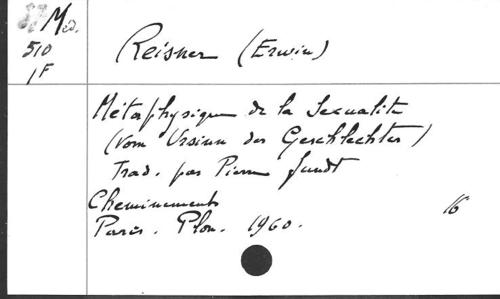 Med.
510
1F
Reisner (Erwin)
Métaphysique de la Sexualité
(Vom Ursinn der Geschlechter)
Trad. par Pierre Jundt
Cheminements
16
Paris. Plon. 1960.